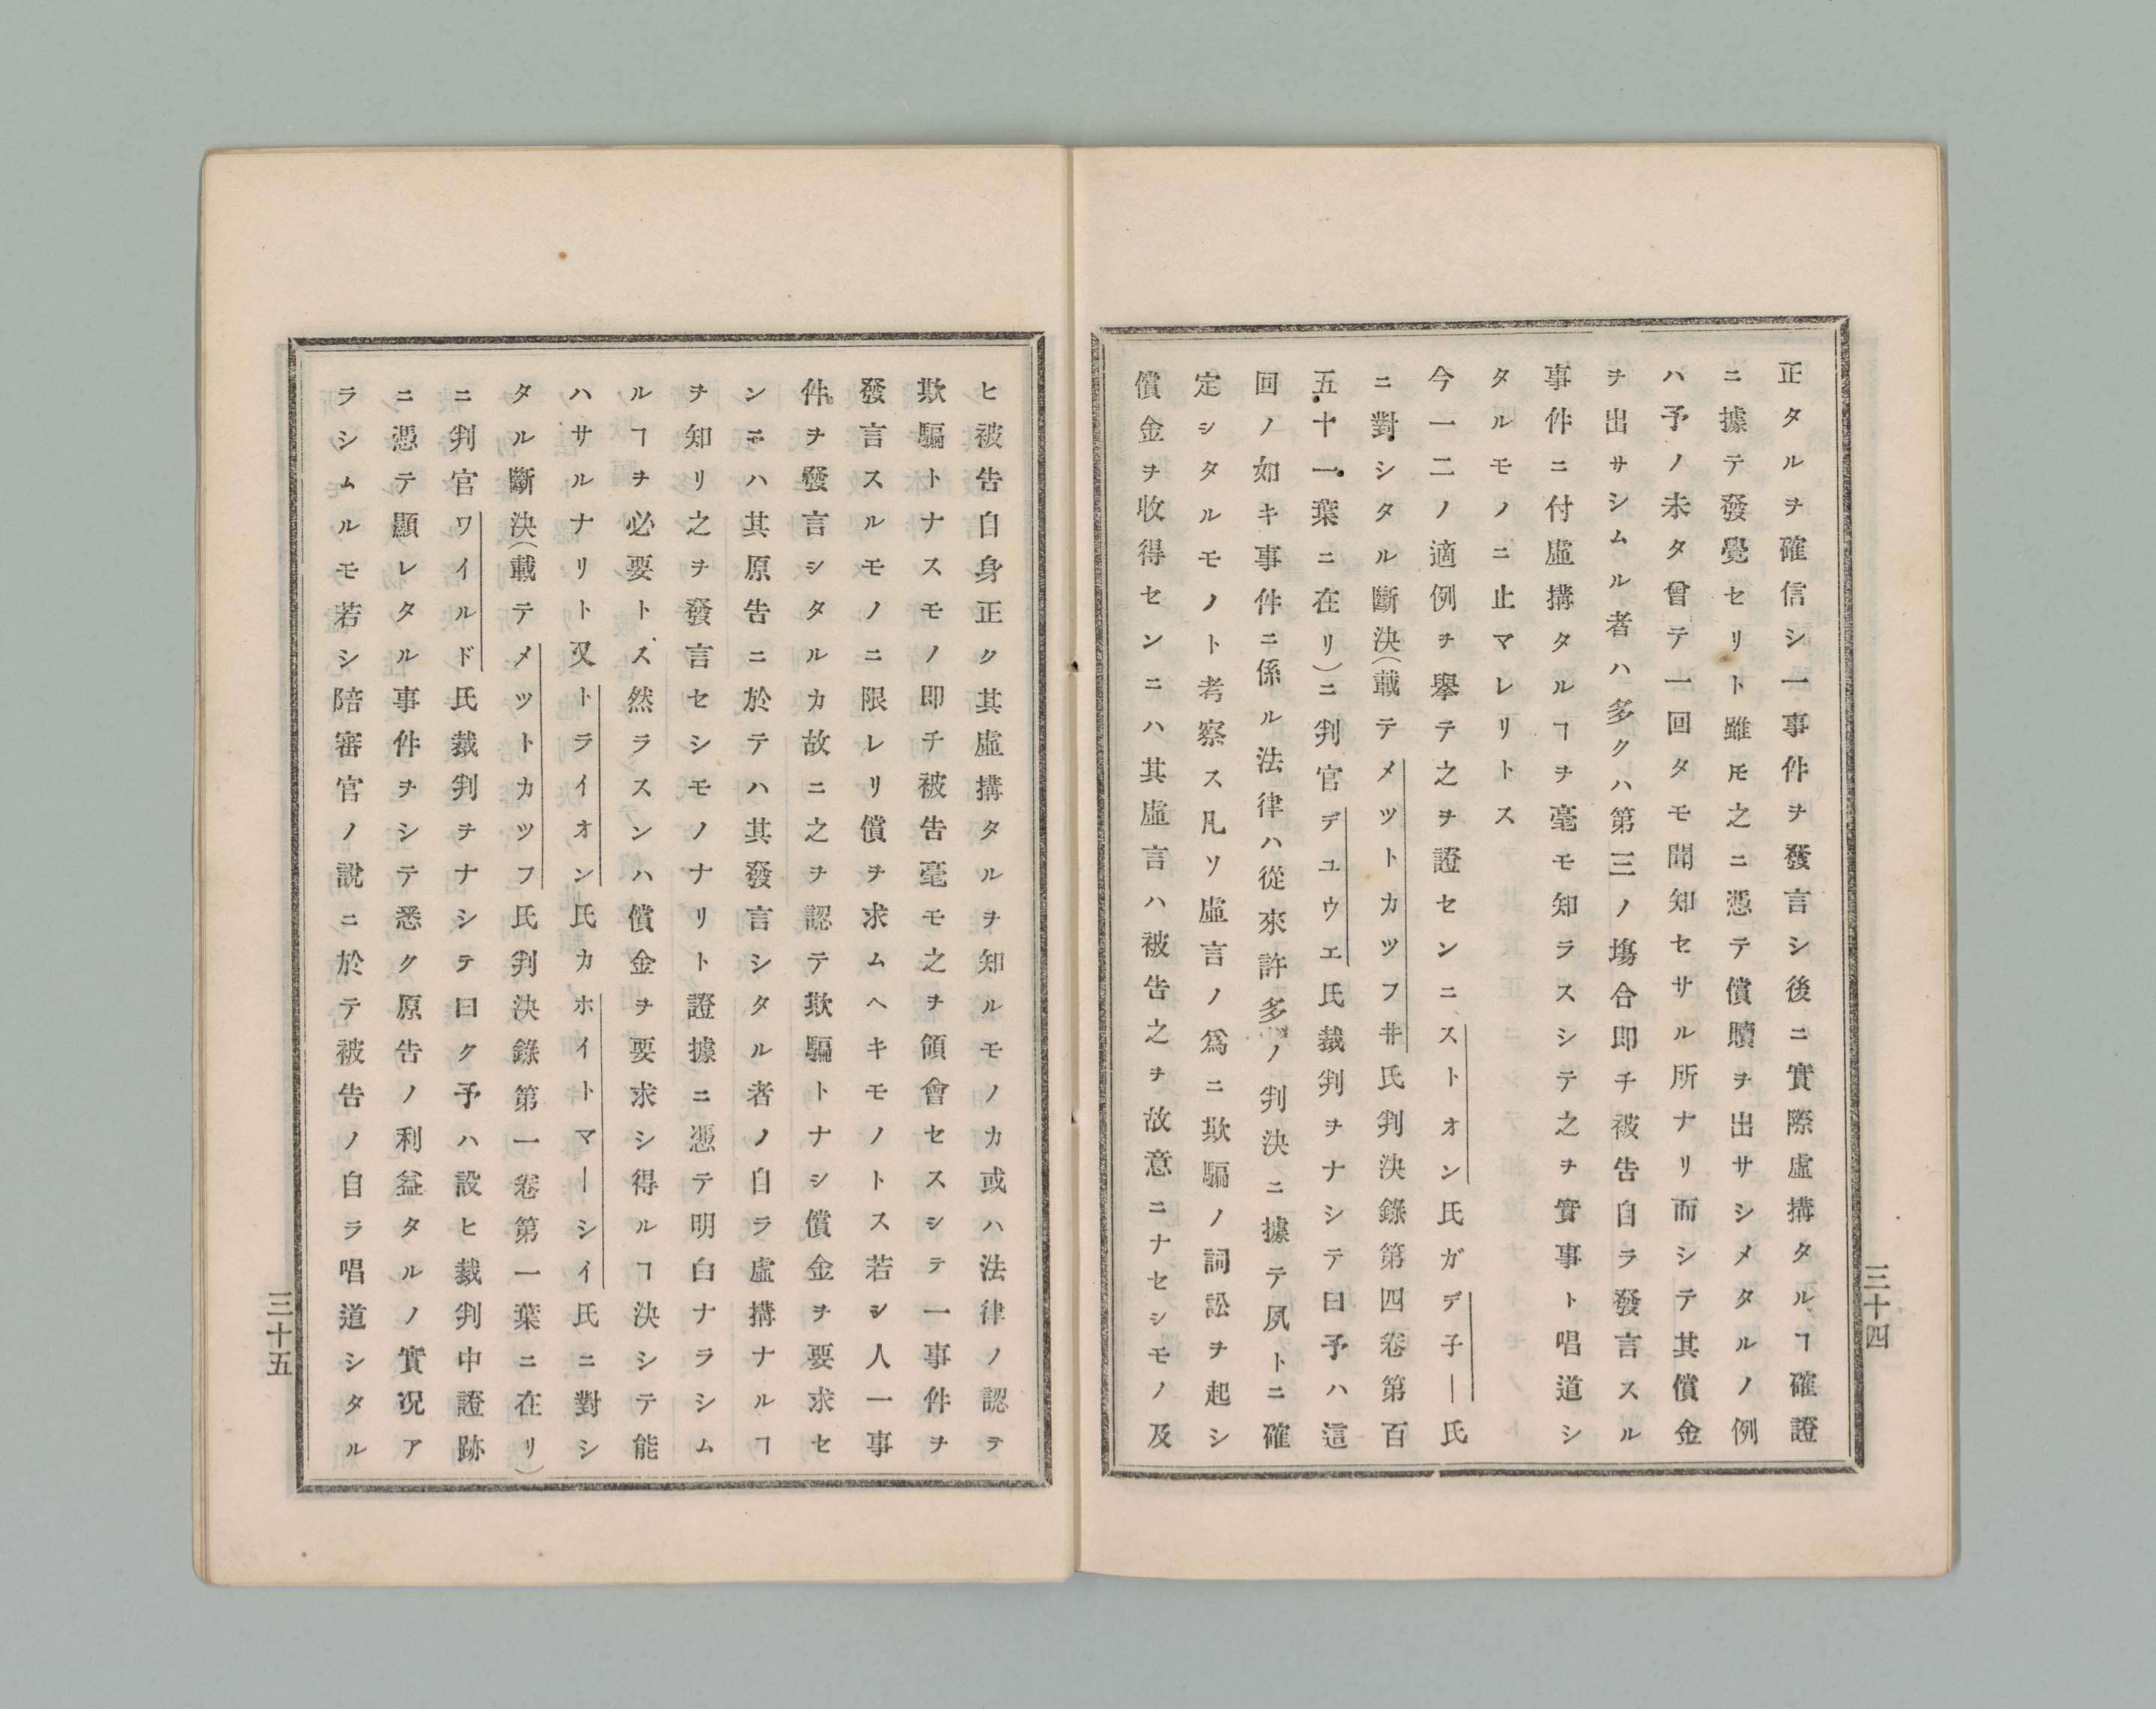 正タルヲ確信シ一事件ヲ發言シ後ニ實際虛搆タルヿ確證
ニ據テ發覺セリト雖𪜈之ニ憑テ償贖ヲ出サシメタルノ例
ハ予ノ未タ曾テ一回タモ聞知セサル所ナリ而シテ其償金
ヲ出サシムル者ハ多クハ第三ノ塲合即チ被告自ラ發言スル
事件ニ付虛搆タルヿヲ毫モ知ラスシテ之ヲ實事ト唱道シ
タルモノニ止マレリトス
今一二ノ適例ヲ擧テ之ヲ證センニストオン氏ガデ子ー氏
ニ對シタル斷決(載テメツトカツフ井氏判決錄第四卷第百
五十一葉ニ在リ)ニ判官デユウエ氏裁判ヲナシテ曰予ハ這
回ノ如キ事件ニ係ル法律ハ從來許多ノ判決ニ據テ夙トニ確
定シタルモノト考察ス凡ソ虛言ノ爲ニ欺騙ノ詞訟ヲ起シ
償金ヲ收得センニハ其虛言ハ被告之ヲ故意ニナセシモノ及
三十四
ヒ被告自身正ク其虛搆タルヲ知ルモノカ或ハ法律ノ認テ
欺騙トナスモノ即チ被告毫モ之ヲ領會セスシテ一事件ヲ
發言スルモノニ限レリ償ヲ求ムヘキモノトス若シ人一事
件ヲ發言シタルカ故ニ之ヲ認テ欺騙トナシ償金ヲ要求セ
ンニハ其原告ニ於テハ其發言シタル者ノ自ラ虛搆ナルヿ
ヲ知リ之ヲ發言セシモノナリト證據ニ憑テ明白ナラシム
ルヿヲ必要トス然ラスンハ償金ヲ要求シ得ルヿ決シテ能
ハサルナリト又トライオン氏カホイトマーシイ氏ニ對シ
タル斷決(載テメツトカツフ氏判決錄第一卷第一葉ニ在リ)
ニ判官ワイルド氏裁判ヲナシテ曰ク予ハ設ヒ裁判中證跡
ニ憑テ顯レタル事件ヲシテ悉ク原告ノ利益タルノ實况ア
ラシムルモ若シ陪審官ノ說ニ於テ被告ノ自ラ唱道シタル
三十五